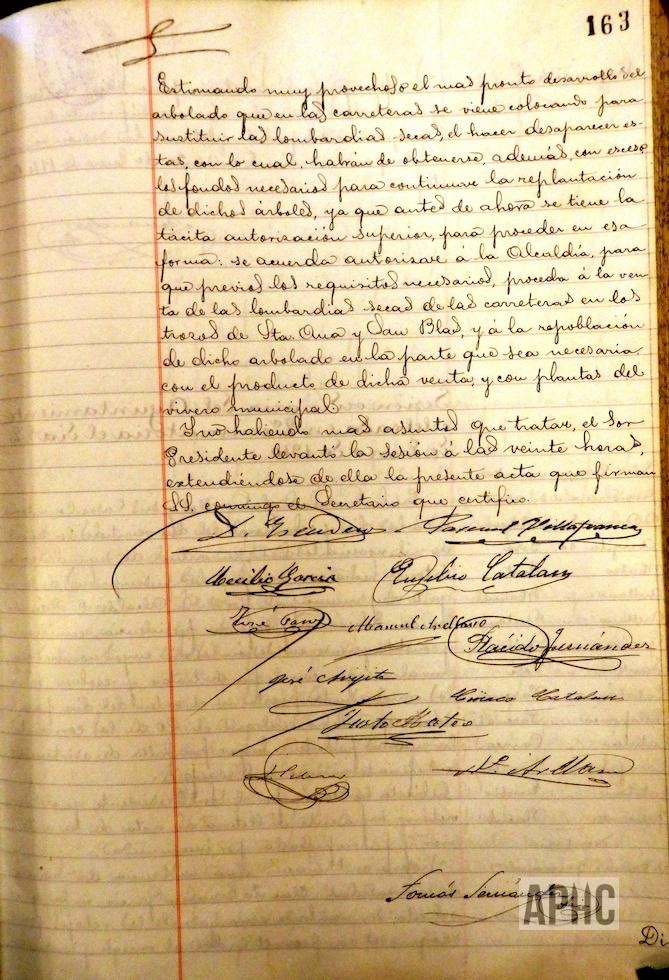 163
Estimando muy provechoso el mas pronto desarrollo del
arbolado que en las carreteras se viene colocando para
sustituir las lombardias secas, el hacer desaparecer es-
tas, con lo cual, habrán de obtenerse, además, con esceso
los fondos necesarios para continuar la replantación
de dichos árboles, ya que antes de ahora se tiene la
tácita autorización superior, para proceder en esa
forma: se acuerda autorizar á la Alcaldía, para
que previos los requisitos necesarios, proceda á la ven-
ta de las lombardias secas de las carreteras en los
trozos de Sta. Ana y San Blas, y á la repoblación
de dicho arbolado en la parte que sea necesaria
con el producto de dicha venta, y con plantas del
vivero municipal.
Y no habiendo mas asuntos que tratar, el Sor.
Presidente levantó la sesión á las veinte horas,
extendiéndose de ella la presente acta que firman
SS. conmigo el Secretario que certifico.
D. Escudero Pascual Villafranca
Cecilio Garcia Eusebio Catalan
José Manuel Arellano
Plácido Fernández
José
Ciriaco Catalan
Justo Mateo
Arellano
Tomás
APHC
Di